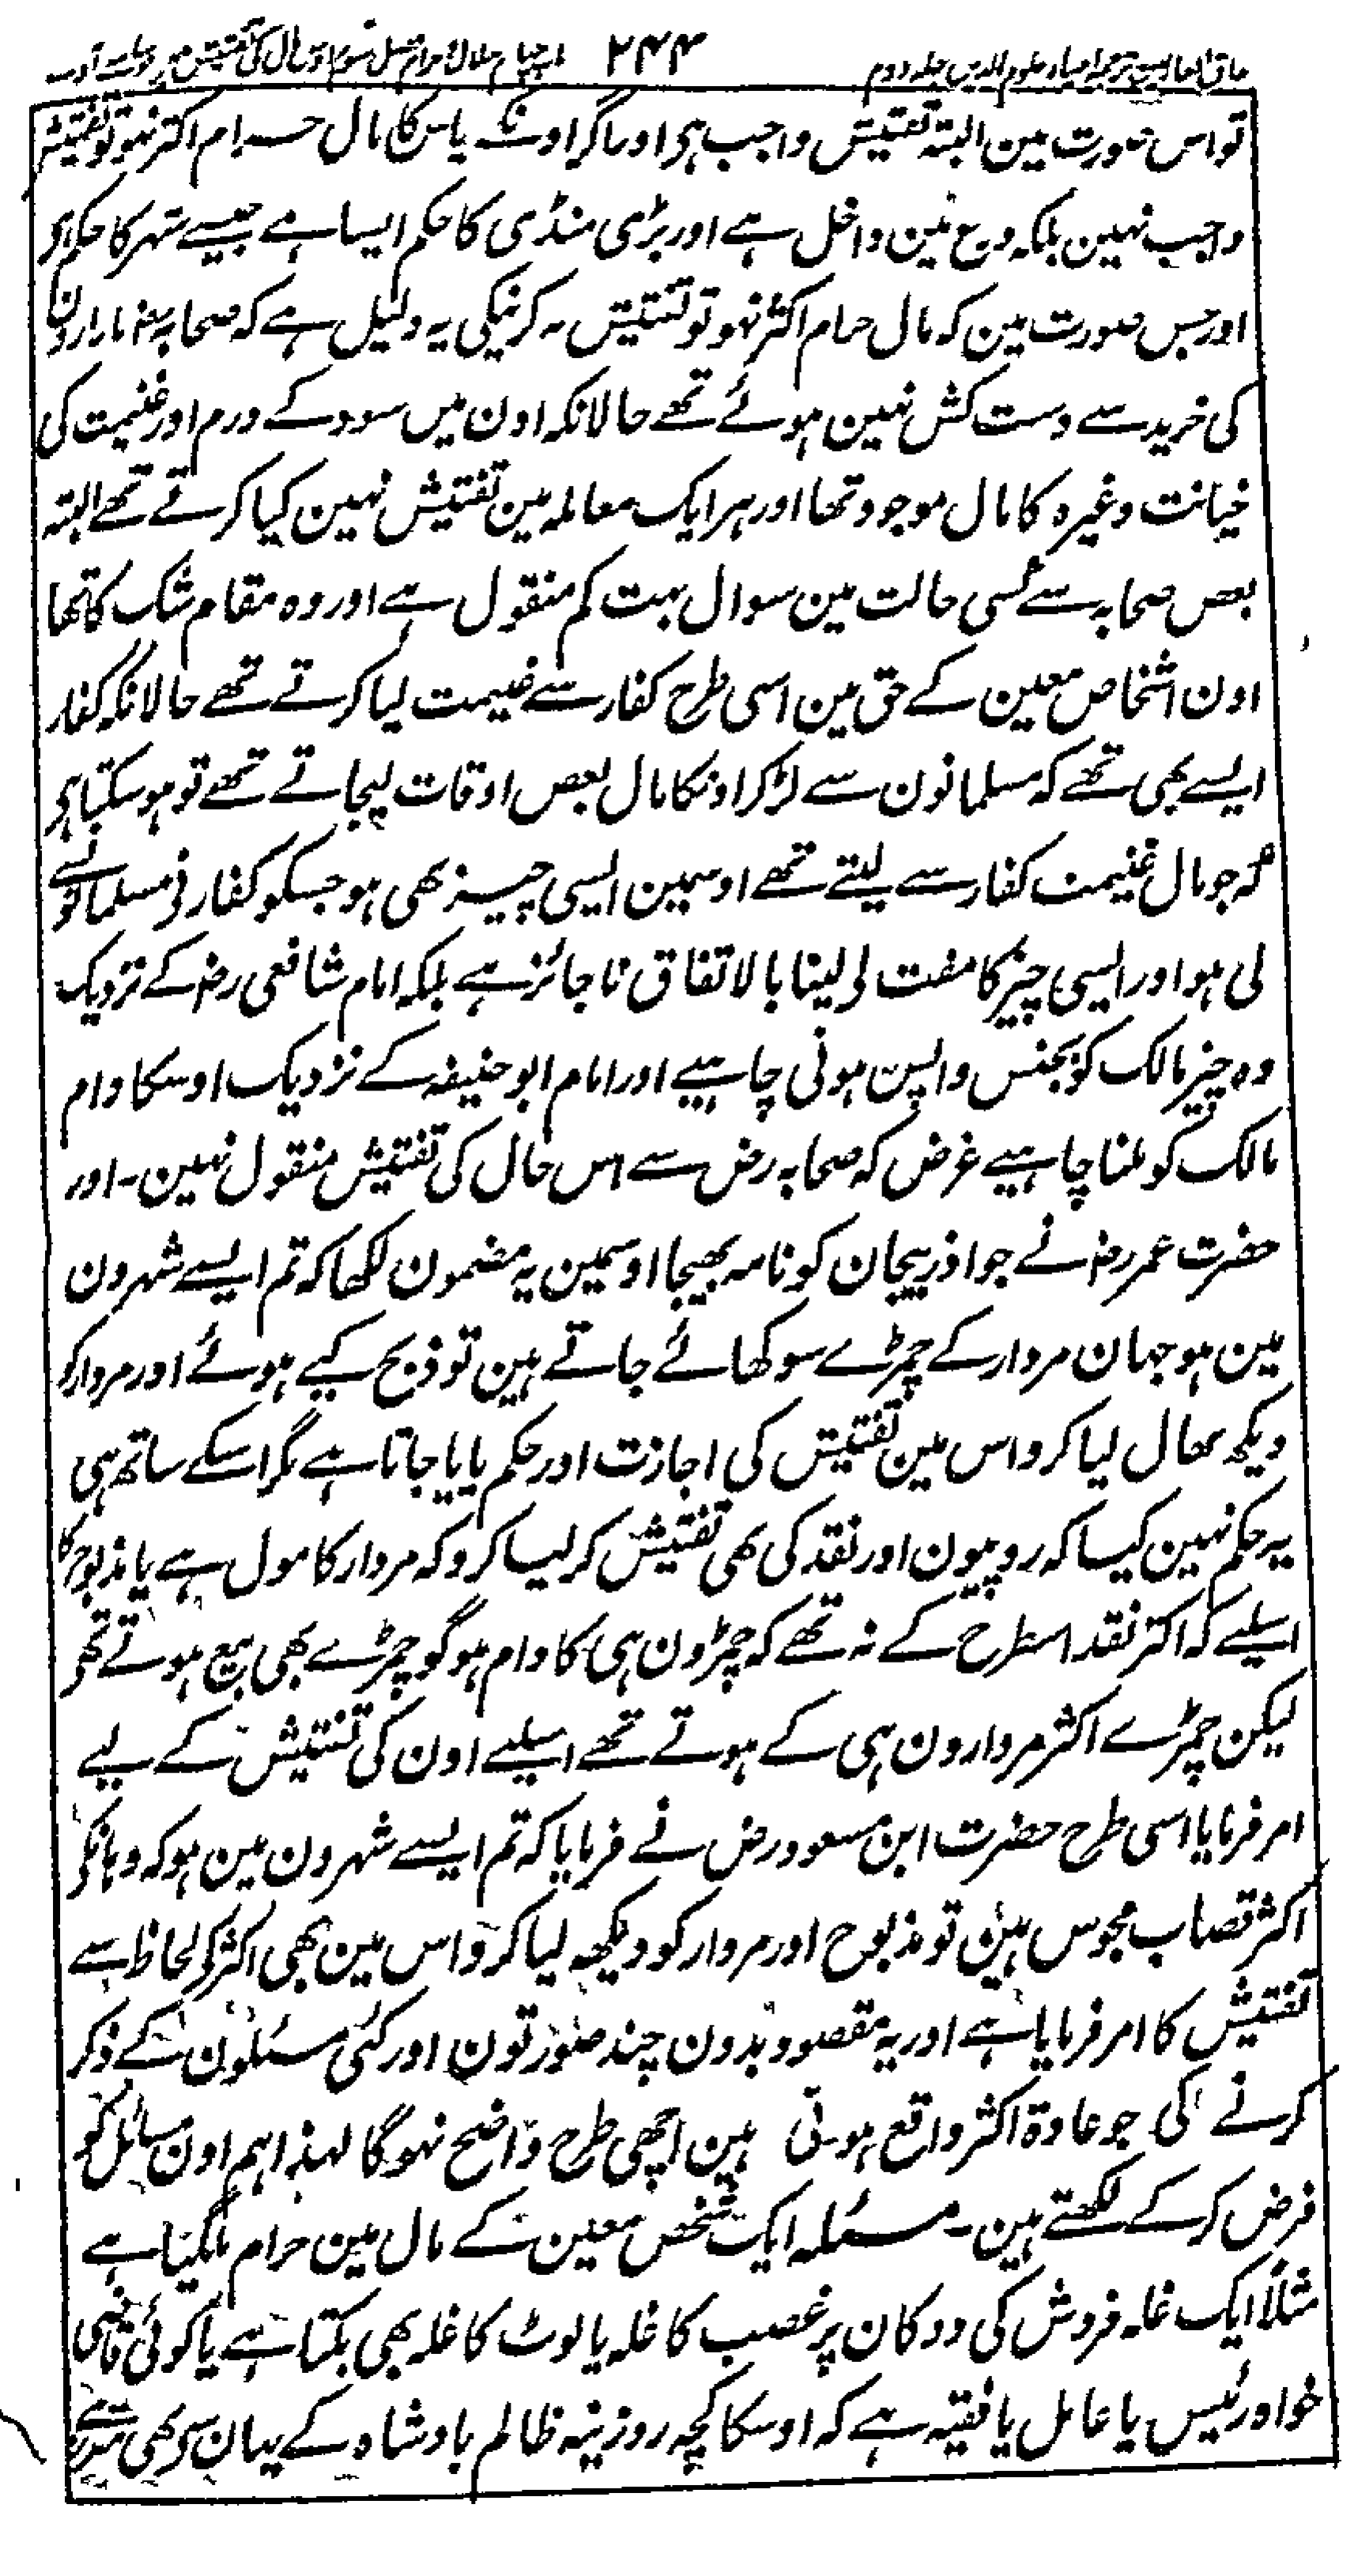 مذاق العارفین ترجمہ احیاء علوم الدین جلد دوم ۲۴۴
تو اس صورت مین البتہ تفتیش واجب ہی اور اگر اونکے پاس کا مال حرام اکثر نہو تو تفتیش
واجب نہین بلکہ ورع مین داخل ہے اور بڑی منڈی کا حکم ایسا ہے جیسے شہر کا حکم ہی
اور جس صورت مین کہ مال حرام اکثر نہو تو تفتیش نہ کرنیکی یہ دلیل ہے کہ صحابہ رضہ بازارون
کی خرید سے دست کش نہین ہوئے تھے حالانکہ اون میں سود کے درم اور غنیمت کی
خیانت وغیرہ کا مال موجود تھا اور ہر ایک معاملہ مین تفتیش نہین کیا کرتے تھے البتہ
بعض صحابہ سے کسی حالت مین سوال بہت کم منقول ہے اور وہ مقام شک کا تھا
اون اشخاص معین کے حق مین اسی طرح کفار سے غنیمت لیا کرتے تھے حالانکہ کفار
ایسے بھی تھے کہ مسلمانون سے لڑکر اونکا مال بعض اوقات لیجاتے تھے تو ہو سکتا ہی
کہ جو مال غنیمت کفار سے لیتے تھے اوسمین ایسی چیز بھی ہو جسکو کفار نی مسلمانونسے
لی ہو اور ایسی چیز کا مفت لی لینا بالاتفاق ناجائز ہے بلکہ امام شافعی رضہ کے نزدیک
وہ چیز مالک کو بجنس واپس ہونی چاہیے اور امام ابو حنیفہ کے نزدیک اوسکا دام
مالک کو ملنا چاہیے غرض کہ صحابہ رض سے اس حال کی تفتیش منقول نہین۔ اور
حضرت عمر رضہ نے جو اذربیجان کو نامہ بھیجا اوسمین یہ مضمون لکھا کہ تم ایسے شہرون
مین ہو جہان مردار کے چمڑے سوکھائے جاتے ہین تو ذبح کیے ہوئے اور مردار کو
دیکھ بھال لیا کرو اس مین تفتیش کی اجازت اور حکم پایا جاتا ہے مگر اسکے ساتھ ہی
یہ حکم نہین کیسا کہ روپیون اور نقد کی بھی تفتیش کر لیسا کرو کہ مردار کا مول ہے یا مذبوح کا
اسلیے کہ اکثر نقد اسطرح کے نہ تھے کہ چمڑون ہی کا دام ہو گو چمڑے بھی بیع ہوتے تھی
لیکن چمڑے اکثر مردارون ہی کے ہوتے تھے اسلیے اون کی تفتیش کے لیے
امر فرمایا اسی طرح حضرت ابن مسعود رض نے فرمایا کہ تم ایسے شہرون مین ہو کہ وہانکے
اکثر قصاب مجوس ہین تو مذبوح اور مردار کو دیکھہ لیا کرو اس مین بھی اکثر کی لحاظ سے
تفتیش کا امر فرمایا ہے اور یہ مقصود بدون چند صورتون اور کئی مسئلون کے ذکر
کرنے کی جو عادۃ اکثر واقع ہوتی ہین اچھی طرح واضح نہوگا لہذا ہم اون مسائل کو
فرض کر کے لکھتے ہین۔ مسئلہ ایک شخص معین کے مال مین حرام ملگیا ہے
مثلاً ایک غلہ فروش کی دوکان پر غصب کا غلہ یا لوٹ کا غلہ بھی بکتا ہے یا کوئی قاضی
خواہ رئیس یا عامل یا فقیہ ہے کہ اوسکا کچہ روزینہ ظالم بادشاہ کے یہان سی بھی